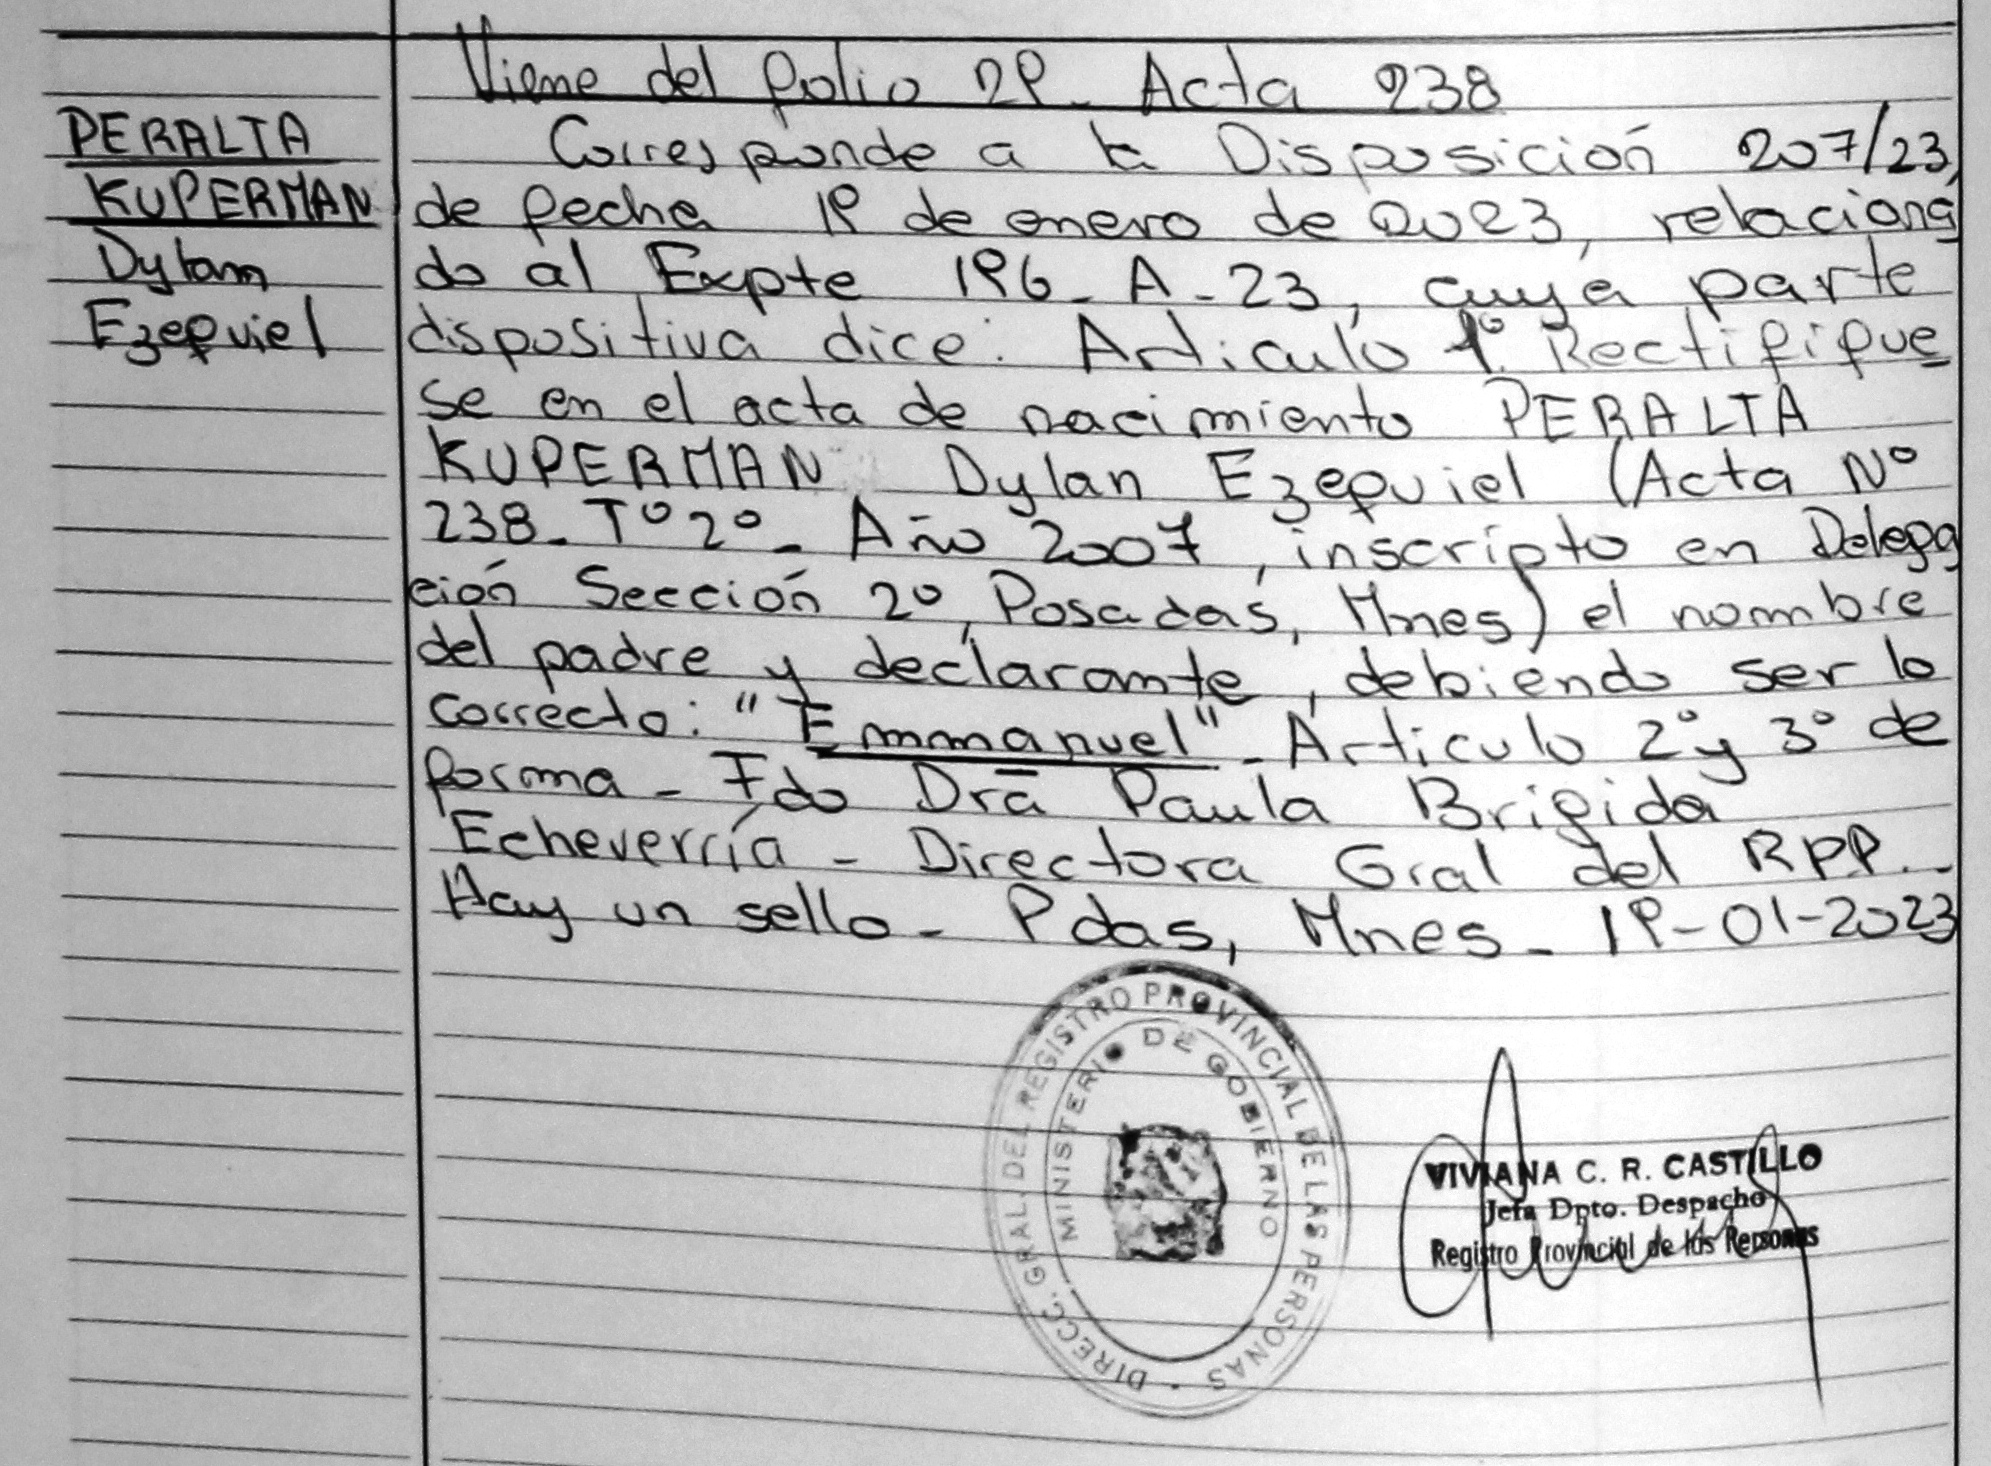 PERALTA
KUPERMAN
Dylan
Ezequiel
Viene del folio 29_ Acta 238
Corresponde a la Disposición 207/23,
de fecha 19 de enero de 2023, relaciona
do al Expte 196_A_23, cuya parte
dispositiva dice: Artículo 1º. Rectifíque
se en el acta de nacimiento PERALTA
KUPERMAN Dylan Ezequiel (Acta Nº
238_ Tº 2º_ Año 2007, inscripto en Delega
ción Sección 2º, Posadas, Mnes) el nombre
del padre y declarante, debiendo ser lo
correcto: "Emmanuel"_ Artículo 2º y 3º de
forma_ Fdo Dra Paula Brigida
Echeverría_ Directora Gral del RPP._
Hay un sello_ Pdas, Mnes_ 19-01-2023
DIRECC. GRAL. DEL REGISTRO PROVINCIAL DE LAS PERSONAS
MINISTERIO DE GOBIERNO
VIVIANA C. R. CASTILLO
Jefa Dpto. Despacho
Registro Provincial de las Personas